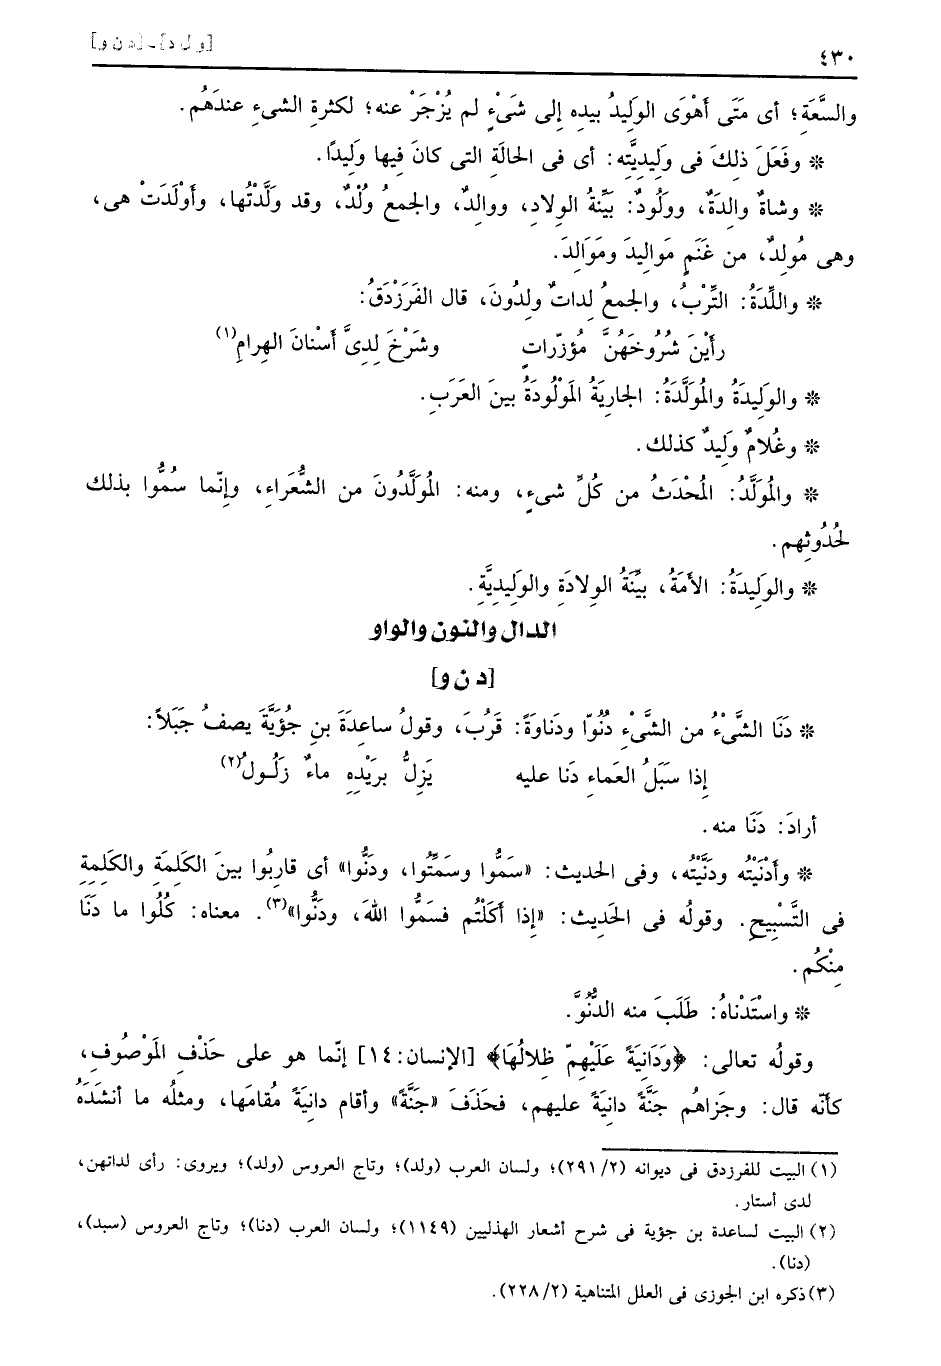 ٤٣٠
[و ل د] ـ [د ن و]
والسَّعَةِ؛ أى مَتَى أَهْوَى الوَلِيدُ بيدِه إلى شَىْءٍ لم يُزْجَرْ عنه؛ لكثرةِ الشىءِ عندَهُم.
* وفَعَلَ ذلِكَ فى وَلِيدِيَّتِه: أى فى الحالَةِ التى كانَ فِيها وَلِيدًا.
* وشاةٌ والِدَةٌ، ووَلُودٌ: بَيِّنةُ الوِلادِ، ووالِدٌ، والجمعُ وُلْدٌ، وقد ولَّدْتُها، وأَوْلَدَتْ هى،
وهى مُولِدٌ، من غَنَمٍ مَوالِيدَ ومَوَالِدَ.
* واللِّدَةُ: التِّرْبُ، والجمعُ لِداتٌ ولِدُونَ، قال الفَرَزْدَقُ:
رأَيْنَ شُرُوخَهُنَّ مُؤزّراتٍ وشَرْخَ لِدِىَّ أَسْنانَ الهِرامِ(١)
* والوَلِيدَةُ والمُوَلَّدَةُ: الجارِيَةُ المَوْلُودَةُ بينَ العَرَبِ.
* وغُلامٌ وَلِيدٌ كذلك.
* والمُولَّدُ: المُحْدَثُ من كُلِّ شىءٍ، ومنه: المُوَلَّدُونَ من الشُّعَراءِ، وإنّما سُمُّوا بذلك
لحُدُوثِهم.
* والوَلِيدَةُ: الأمَةُ، بيِّنَةُ الوِلادَةِ والوَلِيدِيَّةِ.
الدال والنون والواو
[د ن و]
* دَنَا الشَّىْءُ من الشَّىْءِ دُنُوّا ودَناوَةً: قَرُبَ، وقولُ ساعدَةَ بنِ جُؤيَّةَ يصفُ جَبَلاً:
إذا سَبَلُ العَماءِ دَنا عليه يَزِلُّ برَيْدِهِ ماءٌ زَلُولُ(٢)
أرادَ: دَنَا منه.
* وأَدْنَيْتُه ودَنَّيْتُه، وفى الحديث: «سَمُّوا وسَمِّتُوا، ودَنُّوا» أى قارِبُوا بينَ الكَلِمَةِ والكَلِمِةِ
فى التَّسْبِيحِ. وقولُه فى الحَدِيثِ: «إذا أَكَلْتُم فسَمُّوا اللهَ، ودَنُّوا»(٣). معناه: كُلُوا ما دَنَا
مِنْكُم.
* واسْتَدْناهُ: طَلَبَ منه الدُّنُوَّ.
وقولُه تعالى: ﴿وَدَانِيَةً عَلَيْهِمّ ظِلالُهَا﴾ [الإنسان:١٤] إنّما هو على حَذْفِ المَوْصُوفِ،
كأنّه قال: وجَزاهُم جَنَّةً دانِيَةً عليهم، فحَذَفَ «جَنَّةً» وأقام دانِيَةً مُقامَها، ومثلُه ما أنشَدَهُ
(١) البيت للفرزدق فى ديوانه (٢/ ٢٩١)؛ ولسان العرب (ولد)؛ وتاج العروس (ولد)؛ ويروى: رأى لداتهن،
لدى أستار.
(٢) البيت لساعدة بن جؤية فى شرح أشعار الهذليين (١١٤٩)؛ ولسان العرب (دنا)؛ وتاج العروس (سبد)،
(دنا).
(٣) ذكره ابن الجوزى فى العلل المتناهية (٢/ ٢٢٨).